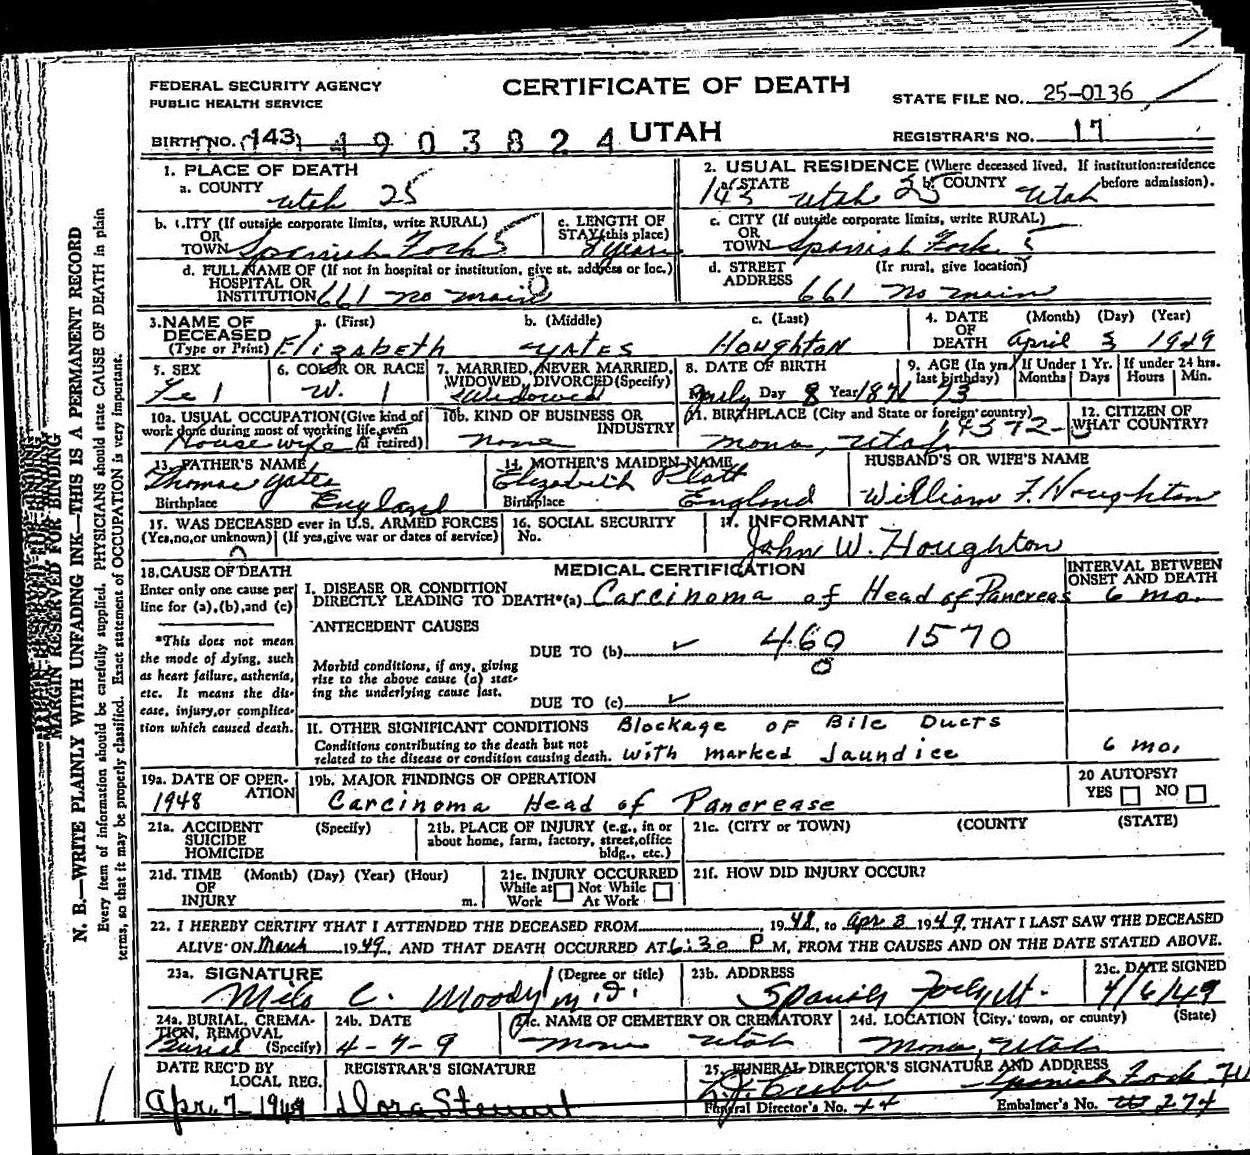 FEDERAL SECURITY AGENCY
PUBLIC HEALTH SERVICE
CERTIFICATE OF DEATH
UTAH
STATE FILE NO. 25-0136
REGISTRAR'S NO. 17
BIRTH NO. (143) 4903824
1. PLACE OF DEATH
a. COUNTY
Utah 25
2. USUAL RESIDENCE (Where deceased lived. If institution: residence before admission).
143 a. STATE Utah 25 b. COUNTY Utah
b. CITY (If outside corporate limits, write RURAL)
OR
TOWN Spanish Fork 5
c. LENGTH OF
STAY (this place)
years
c. CITY (If outside corporate limits, write RURAL)
OR
TOWN Spanish Fork 5
d. FULL NAME OF (If not in hospital or institution, give st. address or loc.)
HOSPITAL OR
INSTITUTION 661 no main
d. STREET (If rural, give location)
ADDRESS 661 no main
3. NAME OF DECEASED (Type or Print)
a. (First) b. (Middle) c. (Last)
Elizabeth Yates Houghton
4. DATE OF DEATH (Month) (Day) (Year)
April 3 1949
5. SEX
Fe 1
6. COLOR OR RACE
W. 1
7. MARRIED, NEVER MARRIED,
WIDOWED, DIVORCED (Specify)
Widowed
8. DATE OF BIRTH
Day 8 Year
9. AGE (In yrs. last birthday) If Under 1 Yr. Months Days If under 24 hrs. Hours Min.
73
10a. USUAL OCCUPATION (Give kind of
work done during most of working life, even
Housewife if retired)
10b. KIND OF BUSINESS OR
INDUSTRY
None
11. BIRTHPLACE (City and State or foreign country)
Mona, Utah
12. CITIZEN OF
WHAT COUNTRY?
13. FATHER'S NAME
Thomas Yates
Birthplace England
14. MOTHER'S MAIDEN NAME
Elizabeth Platt
Birthplace England
HUSBAND'S OR WIFE'S NAME
William F. Houghton
15. WAS DECEASED ever in U.S. ARMED FORCES
(Yes, no, or unknown) (If yes, give war or dates of service)
16. SOCIAL SECURITY
No.
17. INFORMANT
John W. Houghton
18. CAUSE OF DEATH
Enter only one cause per
line for (a), (b), and (c)
*This does not mean
the mode of dying, such
as heart failure, asthenia,
etc. It means the dis-
ease, injury, or complica-
tion which caused death.
MEDICAL CERTIFICATION
INTERVAL BETWEEN
ONSET AND DEATH
I. DISEASE OR CONDITION
DIRECTLY LEADING TO DEATH*(a) Carcinoma of Head of Pancreas 6 mo.
ANTECEDENT CAUSES
DUE TO (b) ✓ 460 1570
Morbid conditions, if any, giving
rise to the above cause (a) stat-
ing the underlying cause last.
DUE TO (c) ✓
II. OTHER SIGNIFICANT CONDITIONS Blockage of Bile Ducts
Conditions contributing to the death but not
related to the disease or condition causing death. with marked Jaundice 6 mo.
19a. DATE OF OPER-
ATION
1948
19b. MAJOR FINDINGS OF OPERATION
Carcinoma Head of Pancrease
20 AUTOPSY?
YES NO
21a. ACCIDENT (Specify)
SUICIDE
HOMICIDE
21b. PLACE OF INJURY (e.g., in or
about home, farm, factory, street, office
bldg., etc.)
21c. (CITY or TOWN) (COUNTY (STATE)
21d. TIME (Month) (Day) (Year) (Hour)
OF
INJURY m.
21e. INJURY OCCURRED
While at Work Not While At Work
21f. HOW DID INJURY OCCUR?
22. I HEREBY CERTIFY THAT I ATTENDED THE DECEASED FROM 1948, to Apr 3 1949, THAT I LAST SAW THE DECEASED
ALIVE ON March 1949, AND THAT DEATH OCCURRED AT 6:30 P M, FROM THE CAUSES AND ON THE DATE STATED ABOVE.
23a. SIGNATURE (Degree or title)
Milo C. Moody M.D.
23b. ADDRESS
Spanish Fork Ut.
23c. DATE SIGNED
4/6/49
24a. BURIAL, CREMA-
TION, REMOVAL
Burial (Specify)
24b. DATE
4-7-9
24c. NAME OF CEMETERY OR CREMATORY
Mona Utah
24d. LOCATION (City, town, or county) (State)
Mona, Utah
DATE REC'D BY
LOCAL REG.
Apr. 7-1949
REGISTRAR'S SIGNATURE
Dora Stewart
25. FUNERAL DIRECTOR'S SIGNATURE AND ADDRESS
Spanish Fork
Funeral Director's No. 44
Embalmer's No. 274
N. B.—WRITE PLAINLY WITH UNFADING INK—THIS IS A PERMANENT RECORD
MARGIN RESERVED FOR BINDING
Every item of information should be carefully supplied. PHYSICIANS should state CAUSE OF DEATH in plain
terms, so that it may be properly classified. Exact statement of OCCUPATION is very important.